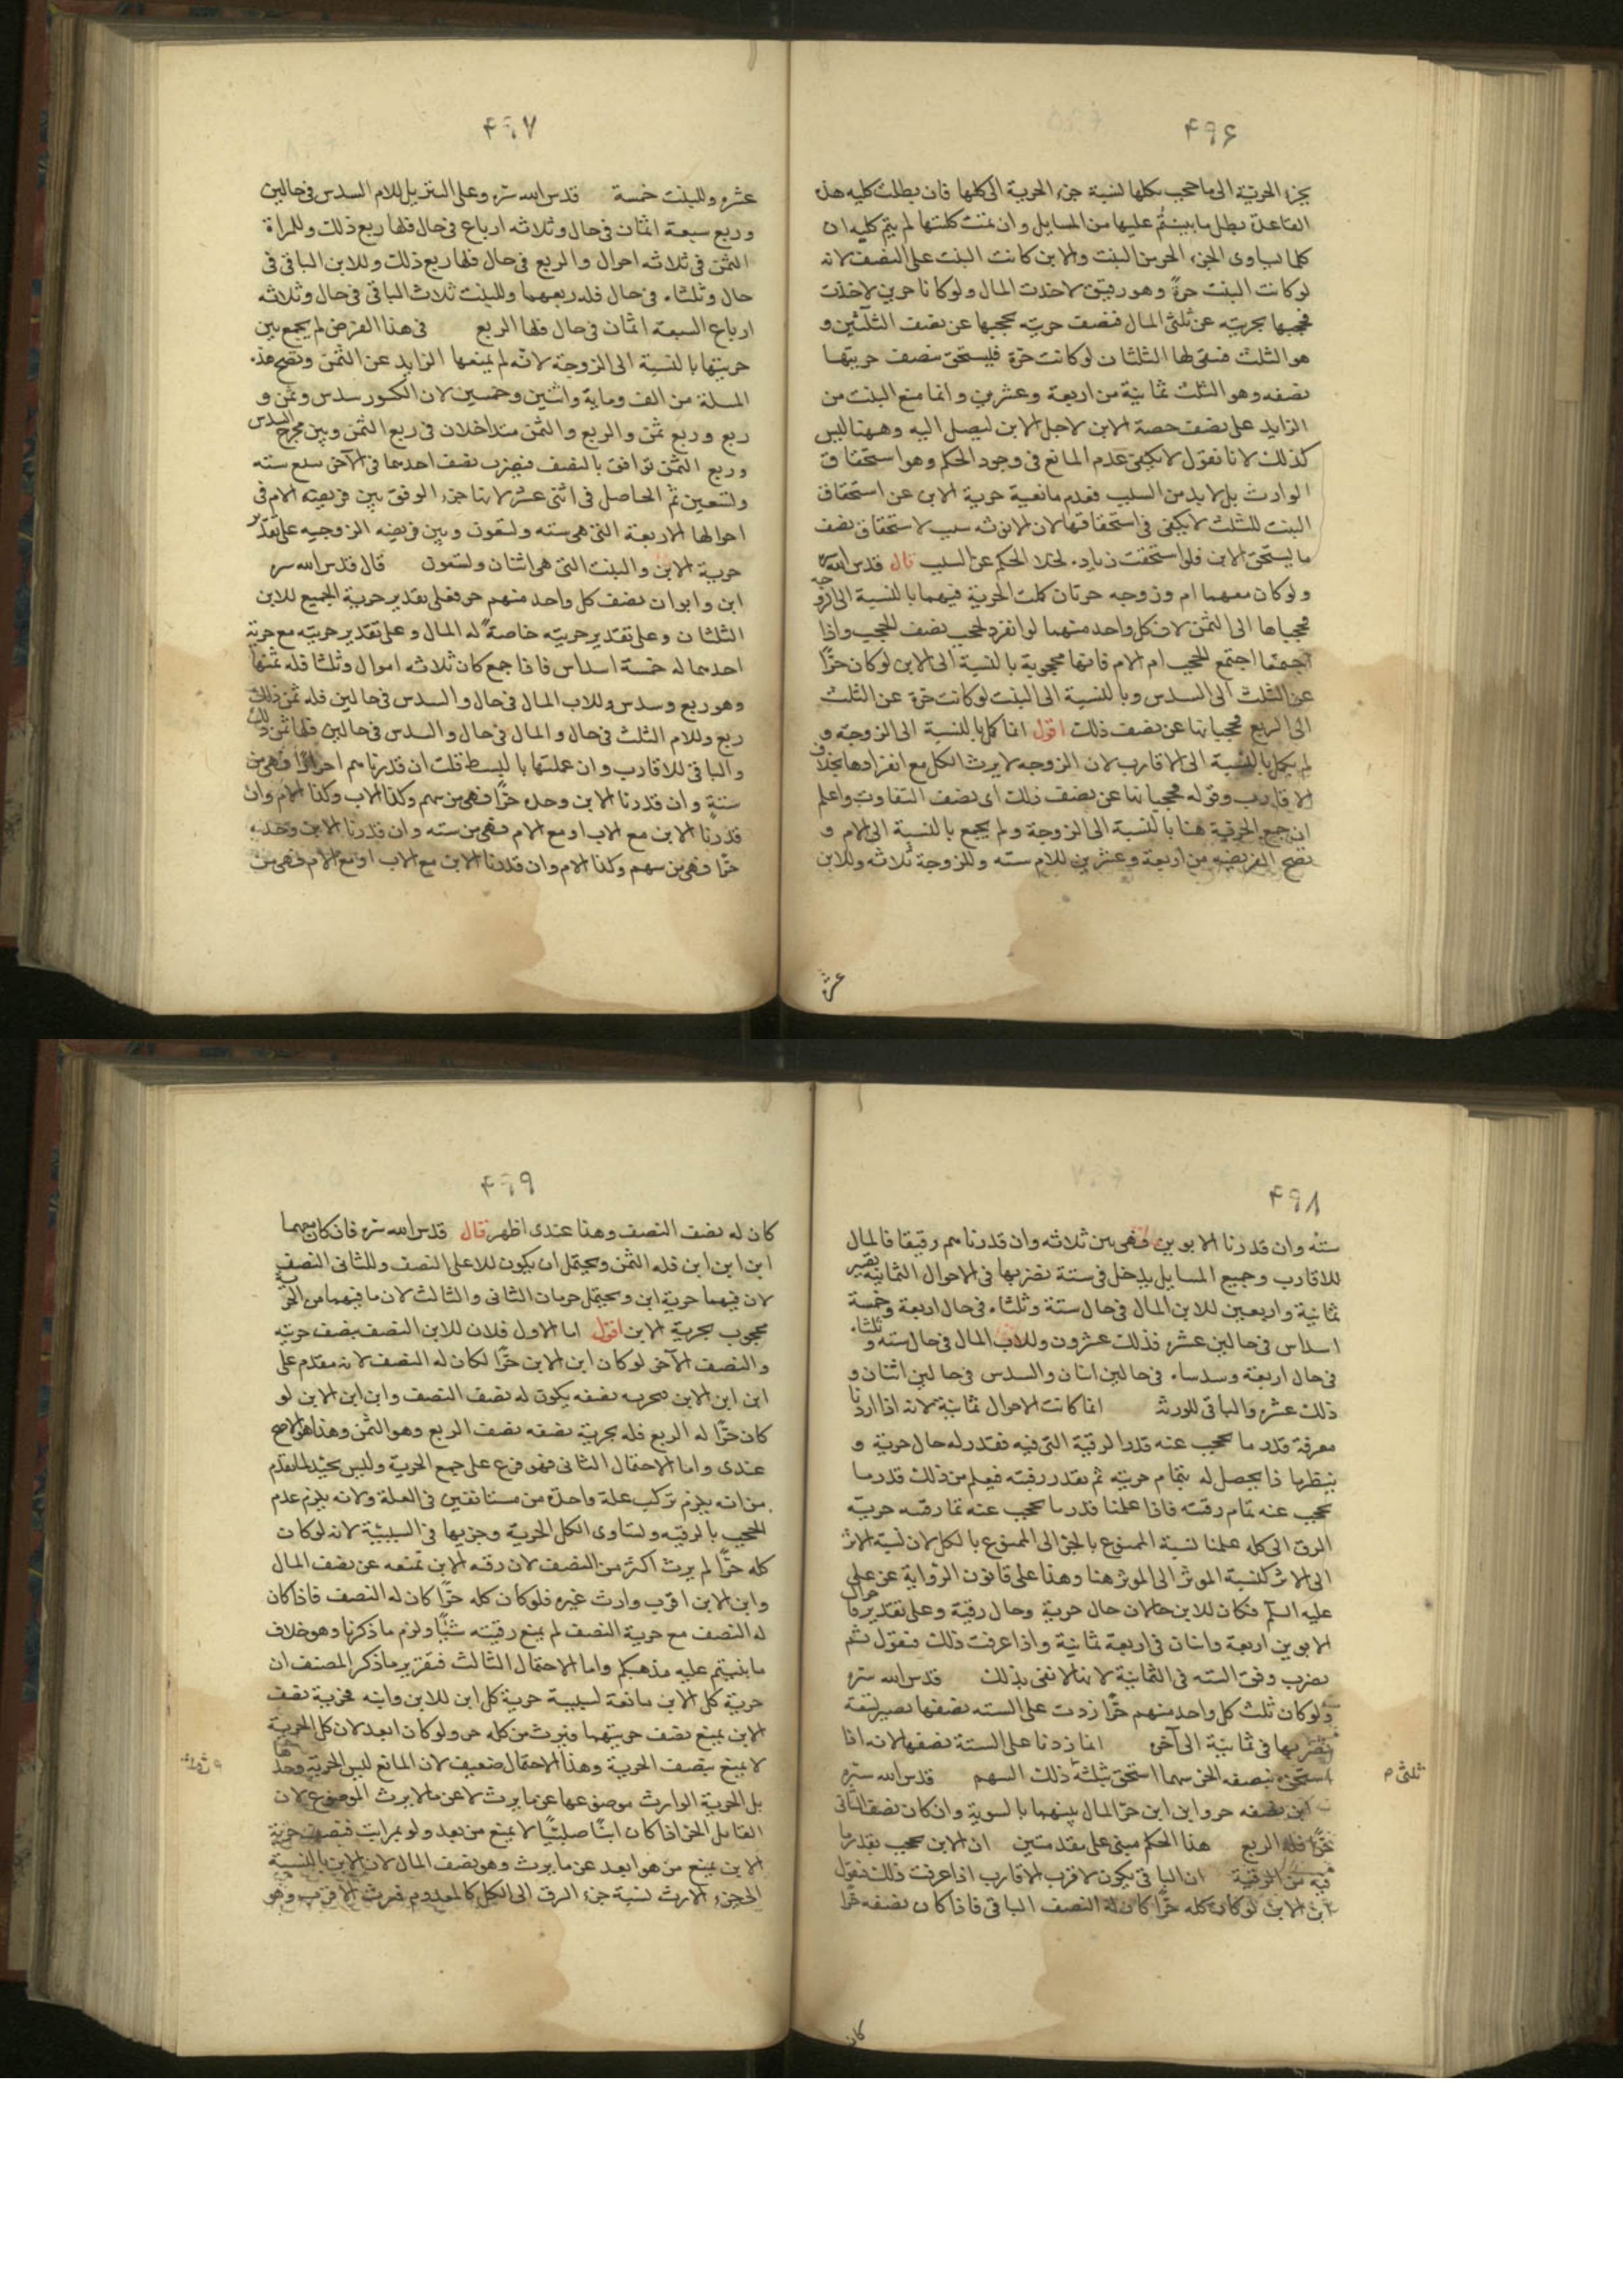 ۴۹۶
بجزء الحرية الى ما حجب بكلها لنسبة جزء الحرية الى كلها فان بطلت كليه هذه
القاعدة بطل ما بينتم عليها من المسايل وان تمت كلتها لم يتم كليه ان
كلما لساوى الجزء الحر من البنت والابن كانت البنت على النصف لانه
لو كانت البنت حرة وهو رقيق لاخذت المال ولو كانا حرين لاخذت
فحجبها بحريته عن ثلثى المال فنصف حريته يحجبها عن نصف الثلثين و
هو الثلث فبقى لها الثلثان لو كانت حرة فليستحق بنصف حريتها
نصفه وهو الثلث ثمانية من اربعة وعشرين وانما منع البنت من
الزايد على نصف حصة الابن لاجل الابن ليصل اليه وههنا ليس
كذلك لانا نقول لا يكفى عدم المانع فى وجود الحكم وهو استحقاق
الوارث بل لابد من السبب فعدم مانعية حرية الابن عن استحقاق
البنت للثلث لا يكفى فى استحقاقها لان الانوثه سبب لاستحقاق نصف
ما يستحق الابن فلو استحقت زياده لخلا الحكم عن السبب قال قدس الله سره
ولو كان معهما ام وزوجه حرتان كملت الحرية فيهما بالنسبة الى الزوجه
فحجباها الى الثمن لان كل واحد منهما لو انفرد لحجب نصف الحجب واذا
اجتمعا اجتمع الحجب ام الام فانها محجوبة بالنسبة الى الابن لو كان حرًا
عن الثلث الى السدس وبالنسبة الى البنت لو كانت حرة عن الثلث
الى الربع فحجبانها عن نصف ذلك اقول انما كمل بالنسبة الى الزوجه و
لم يكمل بالنسبة الى الاقارب لان الزوجه لا يرث الكل مع انفرادها بخلاف
الاقارب وقوله فحجبانها عن نصف ذلك اى نصف التفاوت واعلم
ان جمع الحرية هنا بالنسبة الى الزوجة ولم يجمع بالنسبة الى الام و
تصح الفريضه من اربعة وعشرين للام سته وللزوجة ثلاثه وللابن
عشرة
۴۹۷
عشره وللبنت خمسة قدس الله سره وعلى التنزيل للام السدس فى حالين
وربع سبعة اثمان فى حال وثلاثه ارباع فى حال فلها ربع ذلك وللمراة
الثمن فى ثلاثه احوال والربع فى حال فلها ربع ذلك وللابن الباقى فى
حال وثلثاه فى حال فله ربعهما وللبنت ثلاث الباقى فى حال وثلاثه
ارباع السبعة اثمان فى حال فلها الربع فى هذا الفرض لم يجمع بين
حريتها بالنسبة الى الزوجة لانه لم يمنعها الزايد عن الثمن وتصح هذه
المسلة من الف وماية واثنين وخمسين لان الكسور سدس وثمن و
ربع وربع ثمن والربع والثمن متداخلان فى ربع الثمن وبين مخرج السدس
وربع الثمن توافق بالنصف فيضرب نصف احدهما فى الآخر يبلغ سته
وتسعين ثم الحاصل فى اثنى عشر لانها جزء الوفق بين فريضة الام فى
احوالها الاربعة التى هى سته وتسعون وبين فريضه الزوجيه على تقدير
حرية الابن والبنت التى هى اثنان وتسعون قال قدس الله سره
ابن وابوان نصف كل واحد منهم حر فعلى تقدير حرية الجميع للابن
الثلثان وعلى تقدير حريته خاصة له المال وعلى تقدير حريته مع حرية
احدهما له خمسة اسداس فاذا جمع كان ثلاثه اموال وثلثا فله ثمنها
وهو ربع وسدس وللاب المال فى حال والسدس فى حالين فله ثمن ذلك
ربع وللام الثلث فى حال والمال فى حال والسدس فى حالين فلها ثمن ذلك
والباقى للاقارب وان عملتها بالبسط قلت ان قدرناهم احرارًا فهى من
ستة وان قدرنا الابن وحده حرًا فهى من سهم وكذا الاب وكذا الام وان
قدرنا الابن مع الاب او مع الام فهى من سته وان قدرنا الابن وحده
حرًا فهى من سهم وكذا الام وان قدرنا الابن مع الاب او مع الام فهى من
۴۹۸
ستة وان قدرنا الابوين فهى من ثلاثه وان قدرناهم رقيقا فالمال
للاقارب وجميع المسايل يدخل فى ستة نضربها فى الاحوال الثمانية يصير
ثمانية واربعين للابن المال فى حال ستة وثلثاه فى حال اربعة وخمسة
اسداس فى حالين عشر فذلك عشرون وللاب المال فى حال سته وثلثاه
فى حال اربعة وسدساه فى حالين اثنان والسدس فى حالين اثنان و
ذلك عشر والباقى للورثه انما كانت الاحوال ثمانية لانه اذا اردنا
معرفة قدر ما يحجب عنه قدر الرقية التى فيه فقدر له حال حرية و
ينظر ماذا يحصل له بتمام حريته ثم نقدر رقيته فيعلم من ذلك قدر ما
يحجب عنه تمام رقيته فاذا علمنا قدر ما يحجب عنه تمام رقيته حريته
الرق الى كله علمنا نسبة الممنوع بالجزء الى الممنوع بالكل لان نسبة الاثر
الى الاثر كنسبة الموثر الى الموثر هنا وهذا على قانون الرواية عن على
عليه السلم فكان للابن حالان حال حرية وحال رقية وعلى تقديرهما حال
الابوين اربعة واثنان فى اربعة ثمانية واذا عرفت ذلك فنقول ثم
يضرب وفق السته فى الثمانية لانها لا تفى بذلك قدس الله سره
ولو كان ثلث كل واحد منهم حرًا زدت على السته نصفها يصير تسعة
نضربها فى ثمانية الى آخره انما زدنا على الستة نصفها لانه اذا
استحق بنصفه الحر سهما استحق بثلثه ذلك السهم قدس الله سره
ثلثى م
ابن نصفه حر وابن ابن حر المال بينهما بالسوية وان كان نصف الثانى
حرًا فله الربع هذا الحكم مبنى على مقدمتين ان الابن يحجب بقدر ما
فيه من الرقية ان الباقى يكون لاقرب الاقارب اذا عرفت ذلك فنقول
ابن الابن لو كان كله حرًا كان له النصف الباقى فاذا كان نصفه حرًا
كان
۴۹۹
كان له نصف النصف وهذا عندى اظهر قال قدس الله سره فان كان معهما
ابن ابن ابن فله الثمن ويحتمل ان يكون للاعلى النصف وللثانى النصف
لان فيهما حرية ابن ويحتمل حرمان الثانى والثالث لان ما فيهما من الحرية
محجوب بحرية الابن اقول اما الاول فلان للابن النصف بنصف حريته
والنصف الآخر لو كان ابن الابن حرًا لكان له النصف لانه مقدم على
ابن ابن الابن فحريه نصفه يكون له نصف النصف وابن ابن الابن لو
كان حرًا له الربع فله بحرية نصفه نصف الربع وهو الثمن وهذا هو الاصح
عندى واما الاحتمال الثانى فهو فرع على جمع الحرية وليس بجيد لما تقدم
من انه يلزم تركب علة واحدة من متنافيين فى العلة ولانه يلزم عدم
الحجب بالرقيه ولتساوى الكل الحرية وجزيها فى السببية لانه لو كان
كله حرًا لم يرث اكثر من النصف لان رقه الابن تمنعه عن نصف المال
وابن الابن اقرب وارث غيره فلو كان كله حرًا كان له النصف فاذا كان
له النصف مع حرية النصف لم يمنع رقيته شيًا ولزم ما ذكرنا وهو خلاف
ما بنيتم عليه مذهبكم واما الاحتمال الثالث فتقرير ما ذكر المصنف ان
حرية كل الابن مانعة لسببية حرية كل ابن للابن وابنه فحرية نصف
الابن يمنع نصف حريتهما فيرث من كله حر ولو كان ابعد لان كل الحرية
لا يمنع بنصف الحرية وهذا الاحتمال ضعيف لان المانع ليس الحرية وحدها
بل الحرية الوارث موصوعها عن ما يرث لا عن ما لا يرث الموضوع لان
القاتل الحر اذا كان ابنًا صلبيًا لا يمنع من بعد ولو بمراتب فبنصف حرية
الابن يمنع من هو ابعد عن ما يرث وهو نصف المال لان الابن بالنسبة
الى جزء الارث نسبة جزء الرق الى الكل كالمعدوم فيرث الاقرب وهو